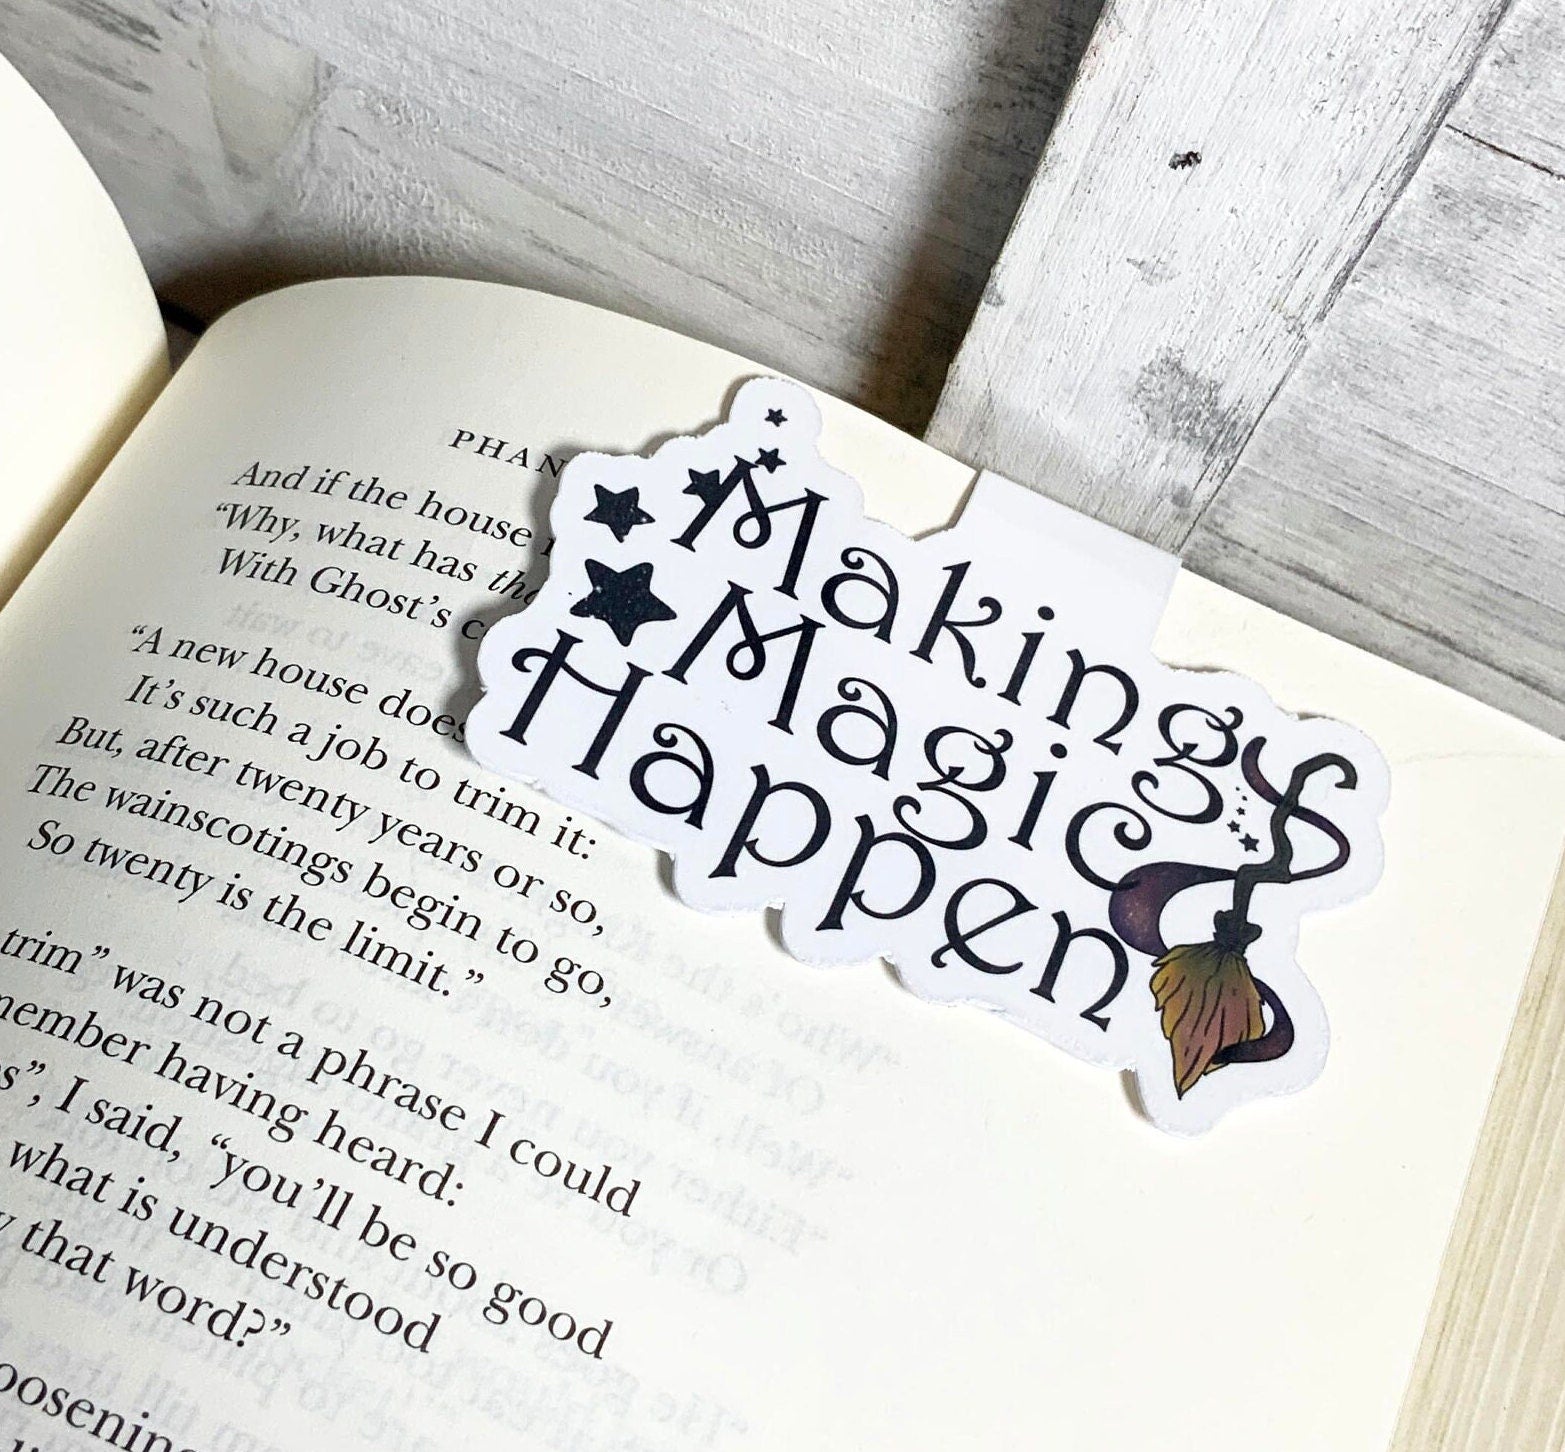 PHAN
And if the house
"Why, what has
With Ghost's
"A new house does
It's such a job to trim it:
But, after twenty years or so,
The wainscotings begin to go,
So twenty is the limit."
trim" was not a phrase I could
having heard:
I said, "you'll be so good
what is understood
that word?"
Making
Magic
Happen